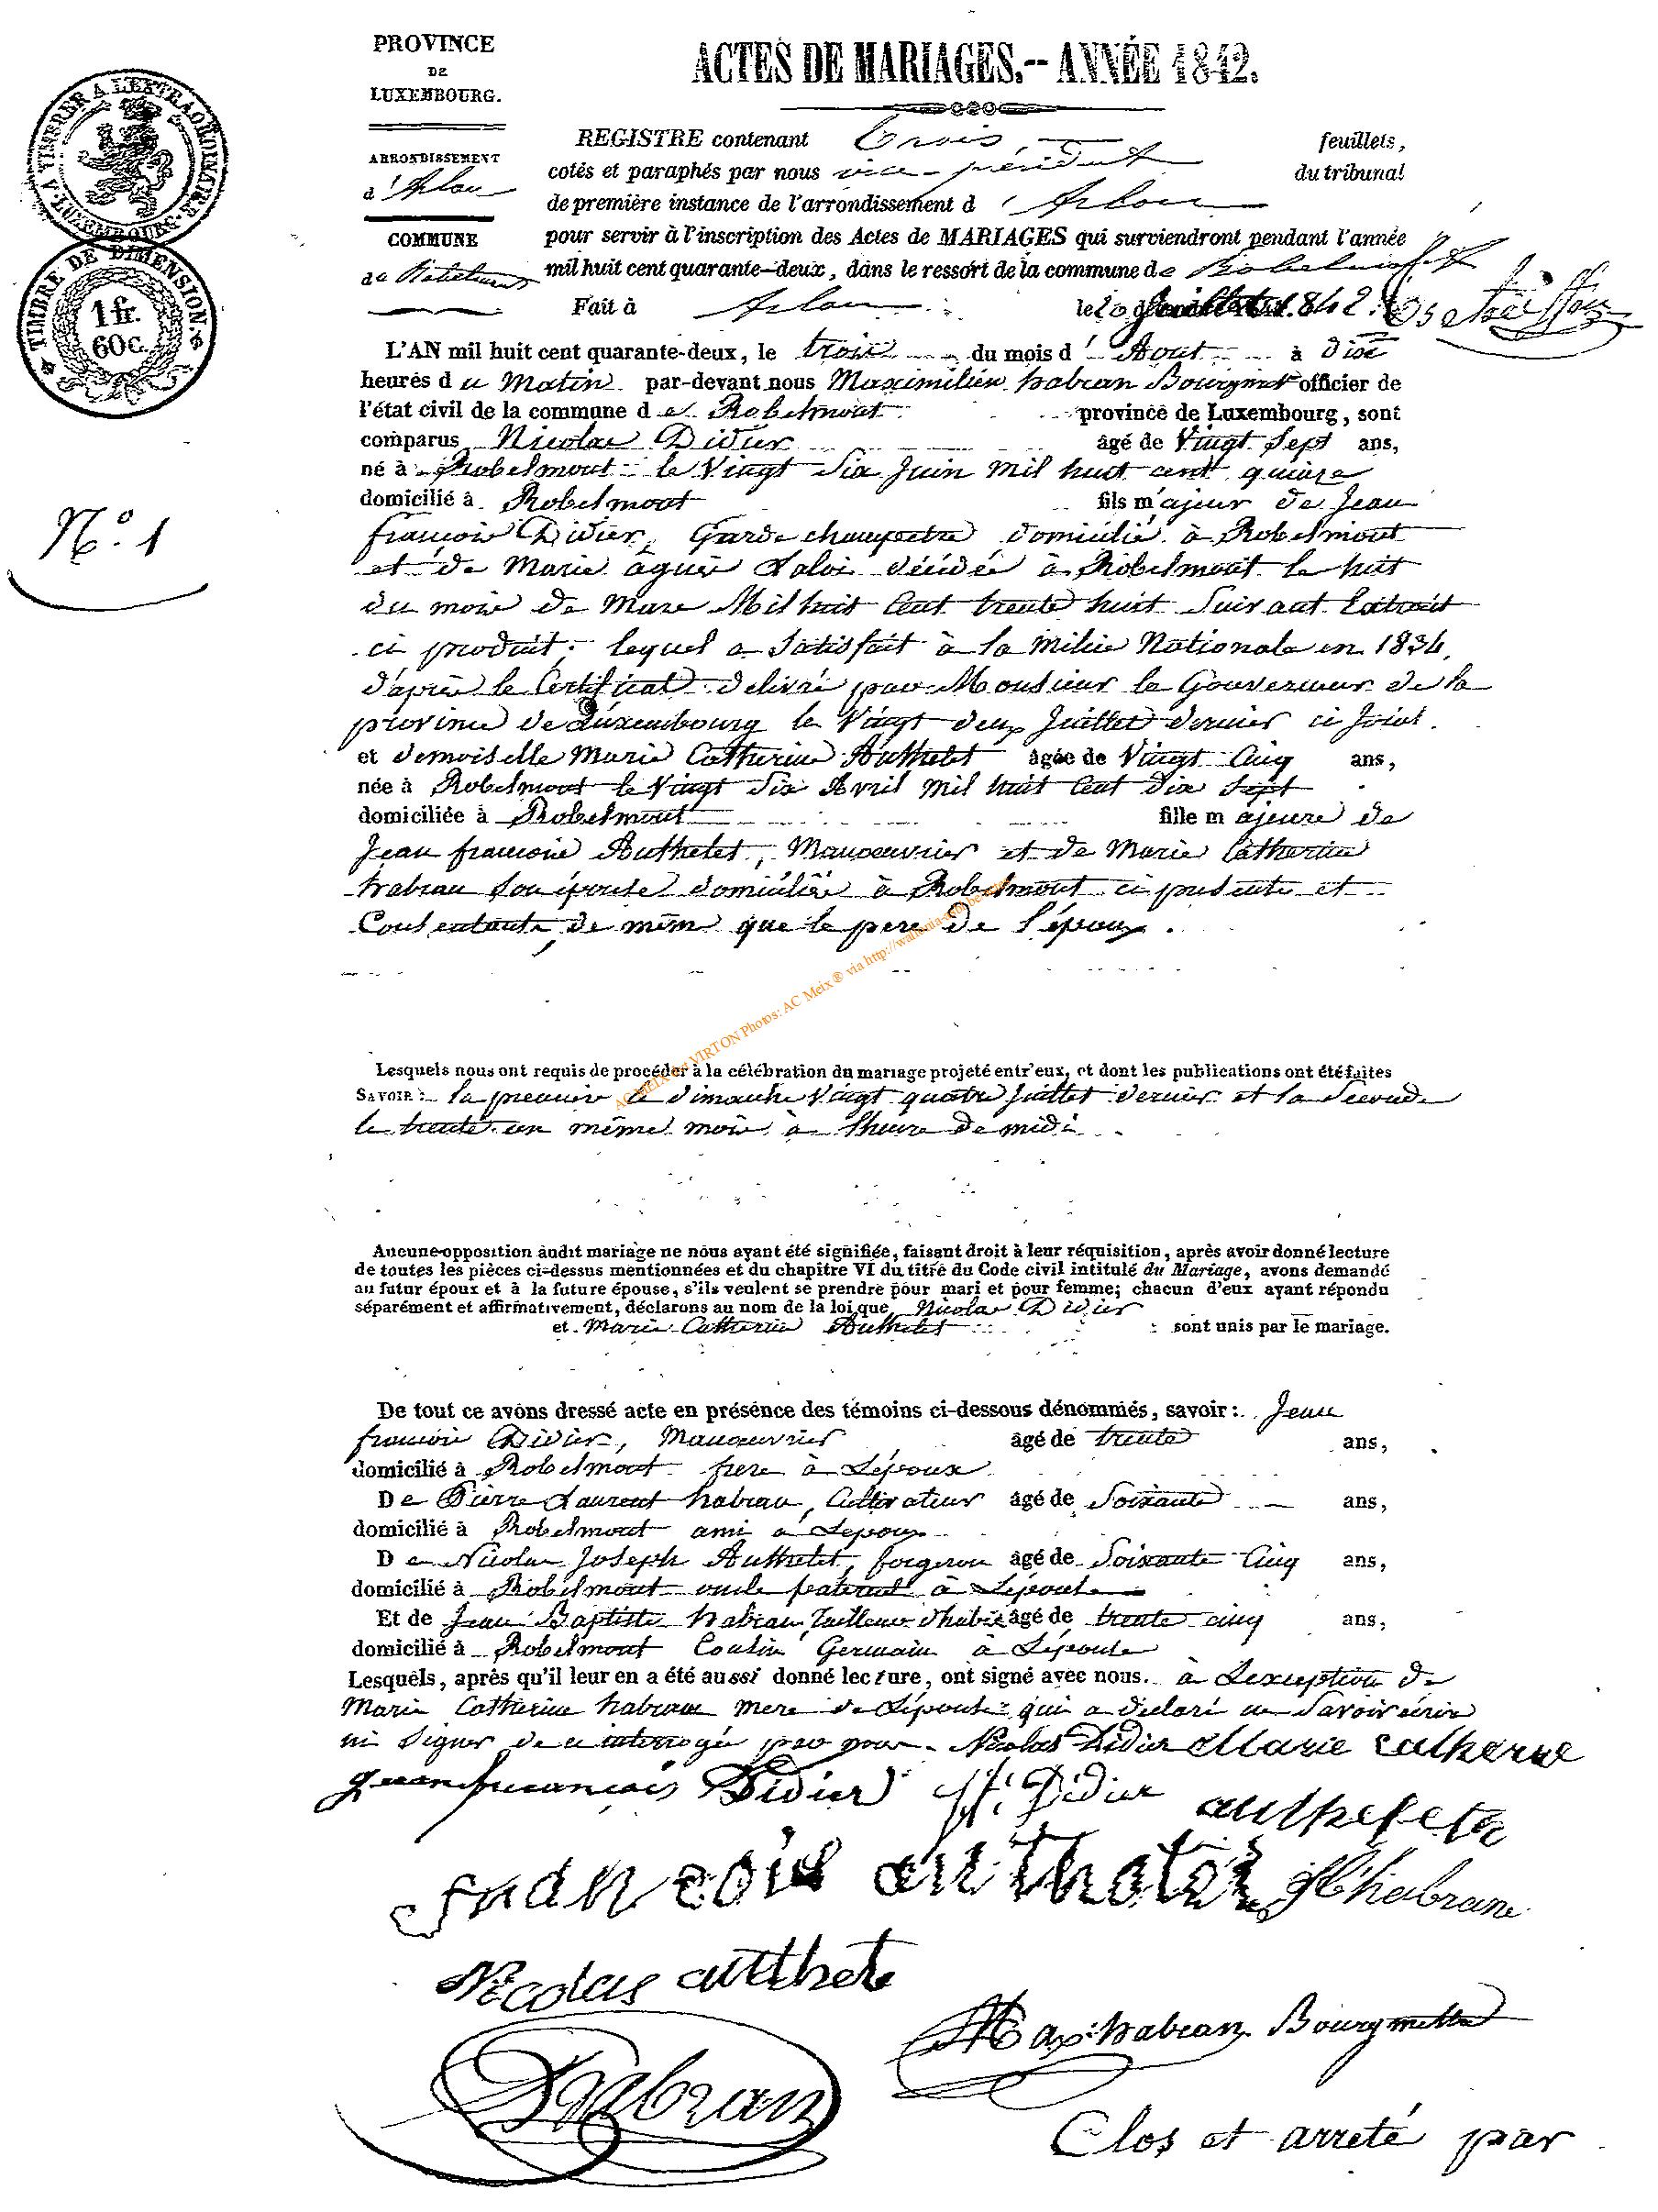 PROVINCE
DE
LUXEMBOURG.
ARRONDISSEMENT
d'Arlon
COMMUNE
de Robelmont
A TIMBRER A L'EXTRAORDINAIRE.
LUXEMBOURG
TIMBRE DE DIMENSION.
1 fr.
60 c.
N.º 1
ACTES DE MARIAGES.-- ANNÉE 1842.
REGISTRE contenant trois feuillets,
cotés et paraphés par nous vice-président du tribunal
de première instance de l'arrondissement d'Arlon
pour servir à l'inscription des Actes de MARIAGES qui surviendront pendant l'année
mil huit cent quarante-deux, dans le ressort de la commune de Robelmont
Fait à Arlon le 20 Juillet 1842.
L'AN mil huit cent quarante-deux, le trois du mois d'Aout à dix
heures du Matin par-devant nous Maximilien habran Bourgmet officier de
l'état civil de la commune de Robelmont province de Luxembourg, sont
comparus Nicolas Didier âgé de Vingt Sept ans,
né à Robelmont le Vingt Six Juin mil huit cent quinze
domicilié à Robelmont fils majeur de Jean
françois Didier, Garde champetre domicilié à Robelmont
et de Marie agnès Laloi décédée à Robelmont le huit
du mois de Mars Mil huit Cent trente huit Suivant Extrait
ci produit; lequel a Satisfait à la milice Nationale en 1834,
d'après le Certificat delivré par Monsieur le Gouverneur de la
province de Luxembourg le Vingt deux Juillet dernier ci joint.
et demoiselle Marie Catherine Authelet âgée de Vingt Cinq ans,
née à Robelmont le Vingt Six Avril mil huit Cent Dix Sept
domiciliée à Robelmont fille majeure de
Jean francoise Authelet, Manoeuvrier et de Marie Catherine
habran Son épouse domiciliés à Robelmont ci présents et
Consentants, de mêm que le pere de l'époux.
AC MEIX dvt VIRTON Photos: AC Meix ® via http://wallonia-asbl.be
Lesquels nous ont requis de procéder à la célébration du mariage projeté entr'eux, et dont les publications ont été faites
SAVOIR: la premiere le dimanche Vingt quatre Juillet dernier et la Seconde
le trente un même mois à l'heure de midi
Aucune opposition audit mariage ne nous ayant été signifiée, faisant droit à leur réquisition, après avoir donné lecture
de toutes les pièces ci-dessus mentionnées et du chapitre VI du titre du Code civil intitulé du Mariage, avons demandé
au futur époux et à la future épouse, s'ils veulent se prendre pour mari et pour femme; chacun d'eux ayant répondu
séparément et affirmativement, déclarons au nom de la loi que Nicolas Didier
et Marie Catherine Authelet sont unis par le mariage.
De tout ce avons dressé acte en présence des témoins ci-dessous dénommés, savoir: Jean
francois Didier, Manoeuvrier âgé de trente ans,
domicilié à Robelmont frere à L'époux
De Pierre Laurent habran, Cultivateur âgé de Soixante ans,
domicilié à Robelmont ami à L'époux
De Nicolas Joseph Authelet, forgeron âgé de Soixante Cinq ans,
domicilié à Robelmont oncle paternel à L'épouse
Et de Jean Baptiste habran Tailleur d'habits âgé de trente cinq ans,
domicilié à Robelmont Cousin Germain à L'épouse
Lesquels, après qu'il leur en a été aussi donné lecture, ont signé avec nous. à L'exception de
Marie Catherine habran mere de L'épouse qui a declaré ne Savoir écrire
ni Signer de ce interrogée par nous. Nicolas Didier Marie catherine
Jean francois Didier J.f. Didier authelet
francois authelet JB habran
Nicolas authelet
Max: habran Bourgmettre
P L habran
Clos et arreté par